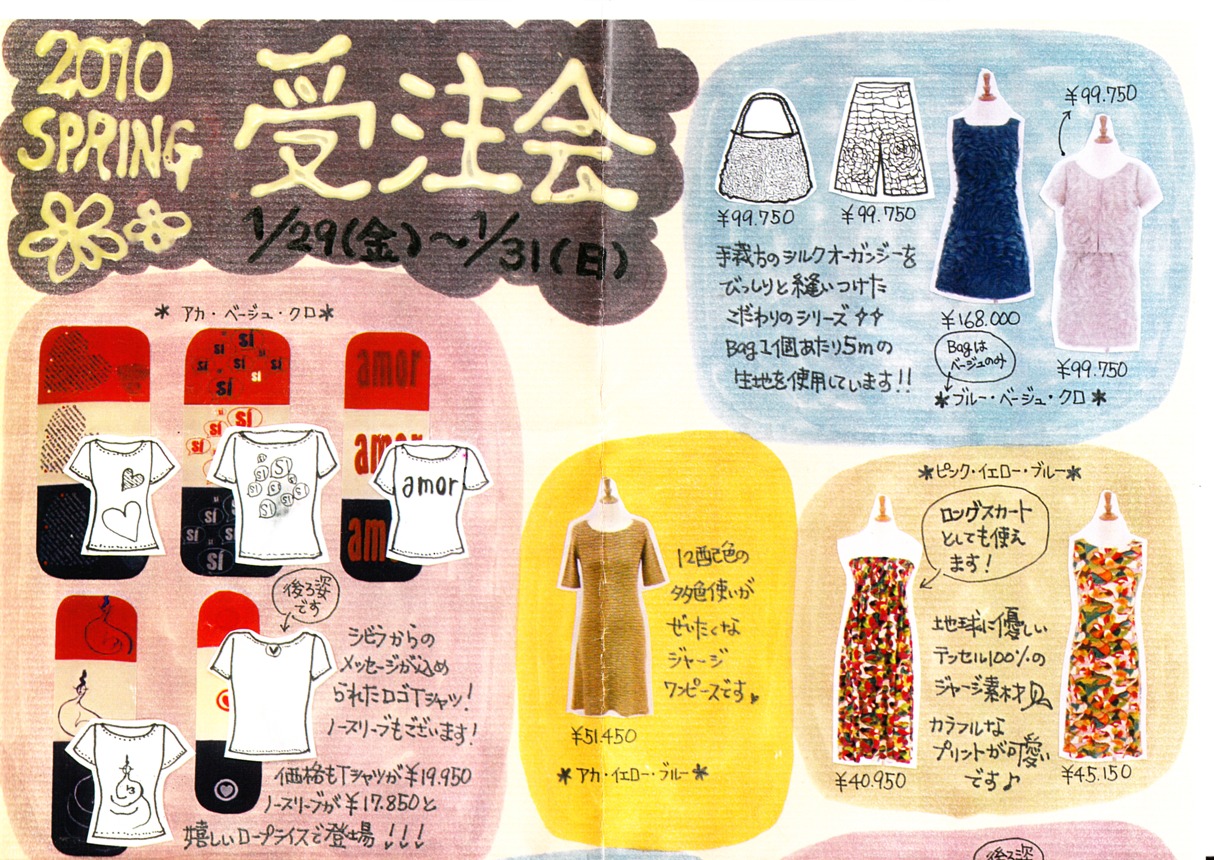 2010
SPRING
受注会
1/29(金)〜1/31(日)
＊アカ・ベージュ・クロ＊
sí
sí
sí
sí
sí
sí
sí
amor
sí
sí
sí
amor
SI
SI
SI
amor
sí
sí
sí
am
後ろ姿
です
シビラからの
メッセージが込め
られたロゴTシャツ!
ノースリーブもございます!
価格もTシャツが¥19.950
ノースリーブが¥17.850と
嬉しいロープライスで登場!!!
¥99.750
¥99.750
¥99.750
手裁ちのシルクオーガンジーを
びっしりと縫いつけた
こだわりのシリーズ
Bag1個あたり5mの
生地を使用しています!!
¥168.000
Bagは
ベージュのみ
¥99.750
＊ブルー・ベージュ・クロ＊
12配色の
多色使いが
ぜいたくな
ジャージ
ワンピースです
¥51.450
＊アカ・イエロー・ブルー＊
＊ピンク・イエロー・ブルー＊
ロングスカート
としても使え
ます!
地球に優しい
テッセル100%の
ジャージ素材
カラフルな
プリントが可愛い
です♪
¥40.950
¥45.150
後ろ姿